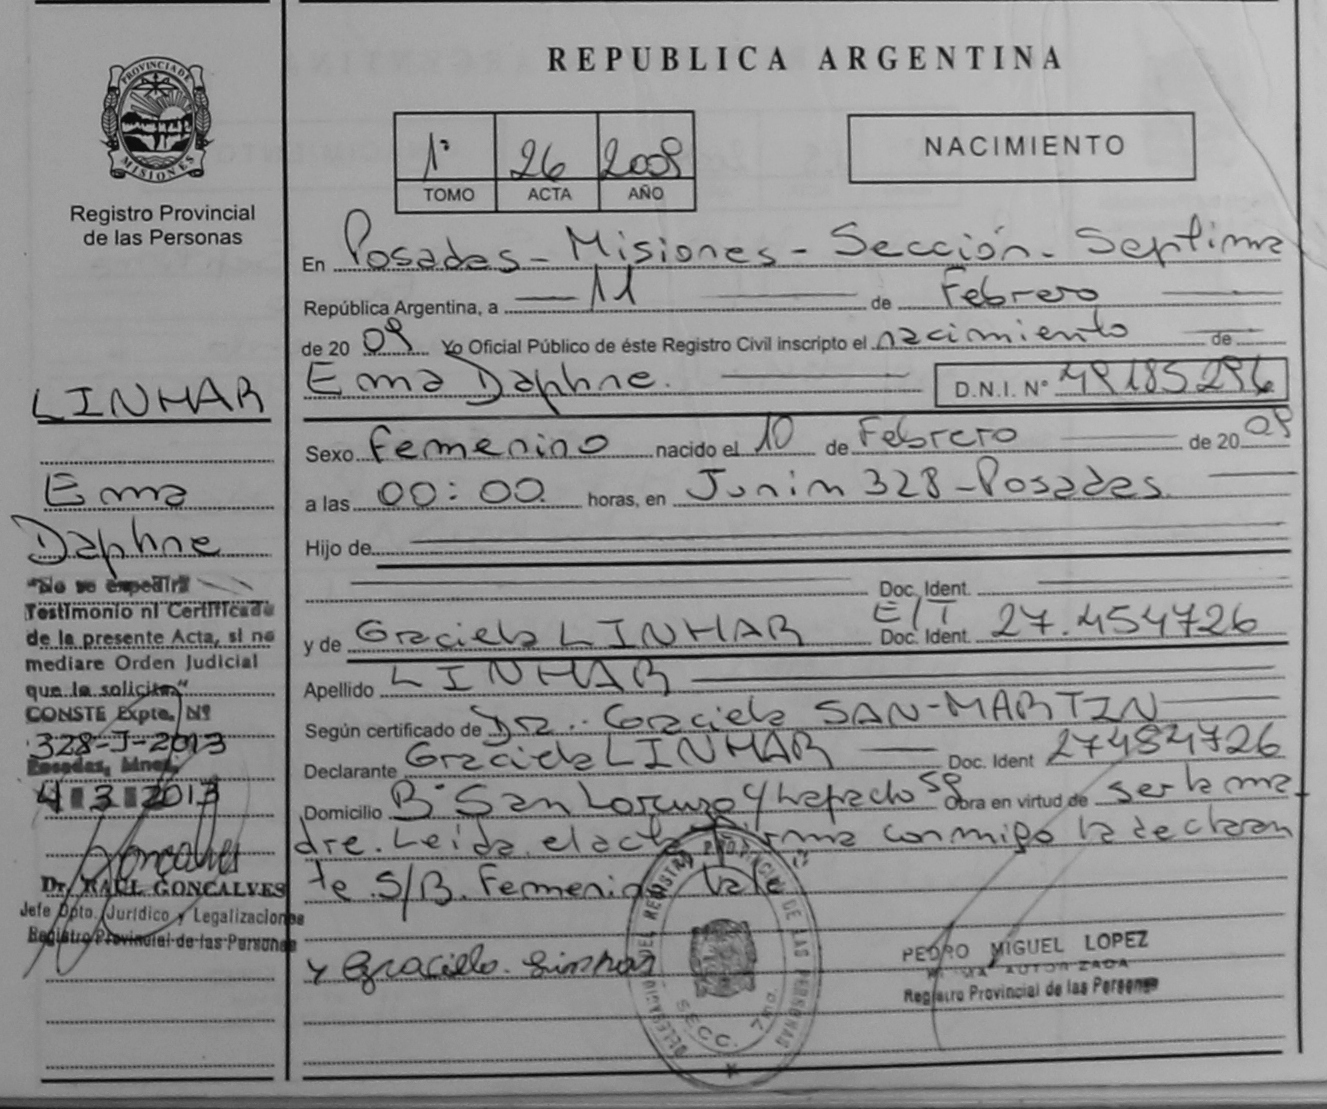 PROVINCIA DE
MISIONES
Registro Provincial
de las Personas
REPUBLICA ARGENTINA
1° 26 2009
TOMO ACTA AÑO
NACIMIENTO
En Posadas - Misiones - Sección - Septima
República Argentina, a 11 de Febrero
de 20 09 Yo Oficial Público de éste Registro Civil inscripto el nacimiento de
Ema Daphne. D.N.I. N° 49185296
Sexo Femenino nacido el 10 de Febrero de 20 09
a las 00:00 horas, en Junin 328 - Posadas
Hijo de
Doc. Ident.
y de Graciela LINHAR E/T Doc. Ident. 27.454726
Apellido LINHAR
Según certificado de Dra. Graciela SAN-MARTIN
Declarante Graciela LINHAR Doc. Ident 27454726
Domicilio B° San Lorenzo y Obra en virtud de ser la ma
dre. Leida el acta firma conmigo la declaran
te S/B. Femenino Vale
y Graciela. Linhar
LINHAR
Ema
Daphne
"No se expedirá
Testimonio ni Certificado
de la presente Acta, si no
mediare Orden Judicial
que la solicite"
CONSTE Expte. Nº
328-J-2013
Posadas, Mnes,
4 3 2013
Goncalves
Dr. RAUL GONCALVES
Jefe Dpto. Jurídico y Legalizaciones
Registro Provincial de las Personas
DELEGACION DEL REGISTRO PROVINCIAL DE LAS PERSONAS
SECC. 7ma.
PEDRO MIGUEL LOPEZ
AUTORIZADA
Registro Provincial de las Personas